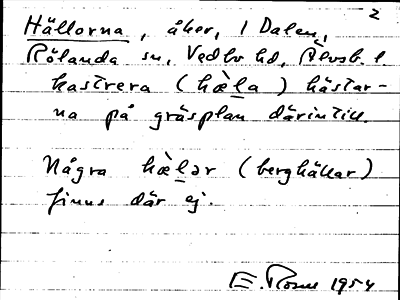 2
Hällorna, åker, 1 Dalen,
Rölanda sn, Vedbo hd, Älvsb. l
kastrera (hæ̀l̲a) hästar-
na på gräsplan därintill.
Några hæ̀l̲ər (berghällar)
finns där ej.
E. 1954